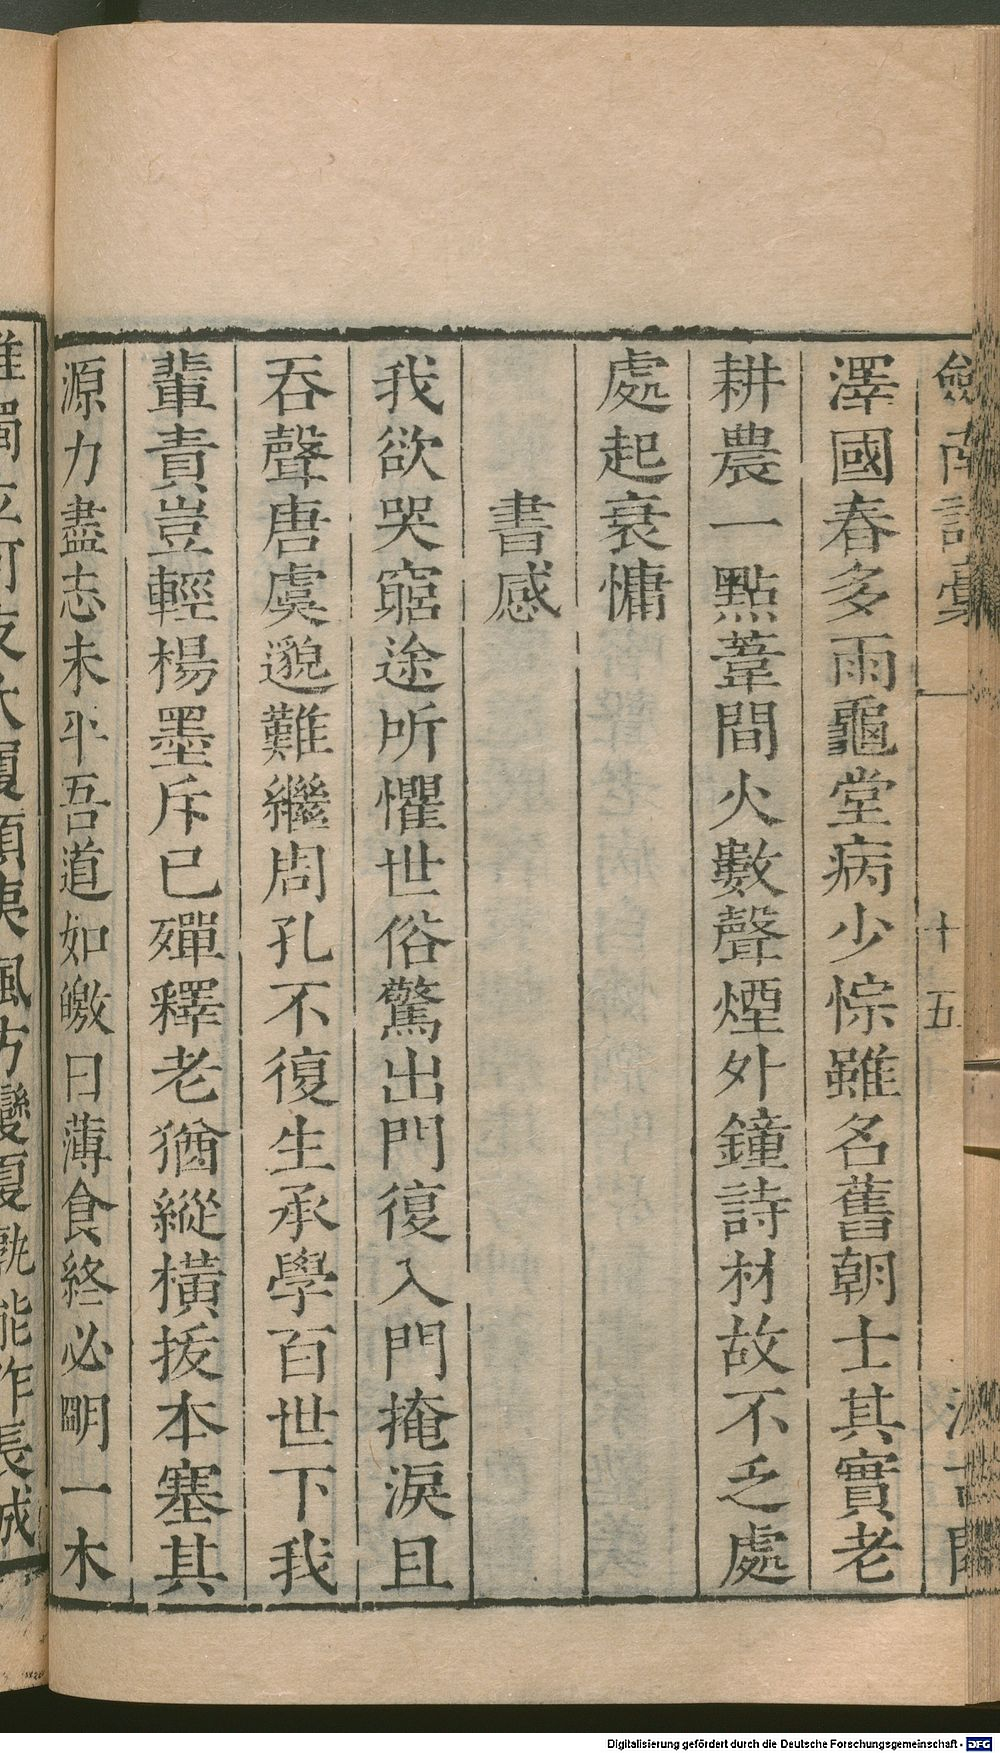 劍南詩稾
十五
澤國春多雨龜堂病少悰雖名舊朝士其實老
耕農一點葦間火數聲煙外鐘詩材故不乏處
處起衰慵
書感
我欲哭窮途所懼世俗驚出門復入門掩淚且
吞聲唐虞邈難繼周孔不復生承學百世下我
輩責豈輕楊墨斥已殫釋老猶縱橫拔本塞其
源力盡志未平吾道如皦日薄食終必明一木
Digitalisierung gefördert durch die Deutsche Forschungsgemeinschaft - DFG